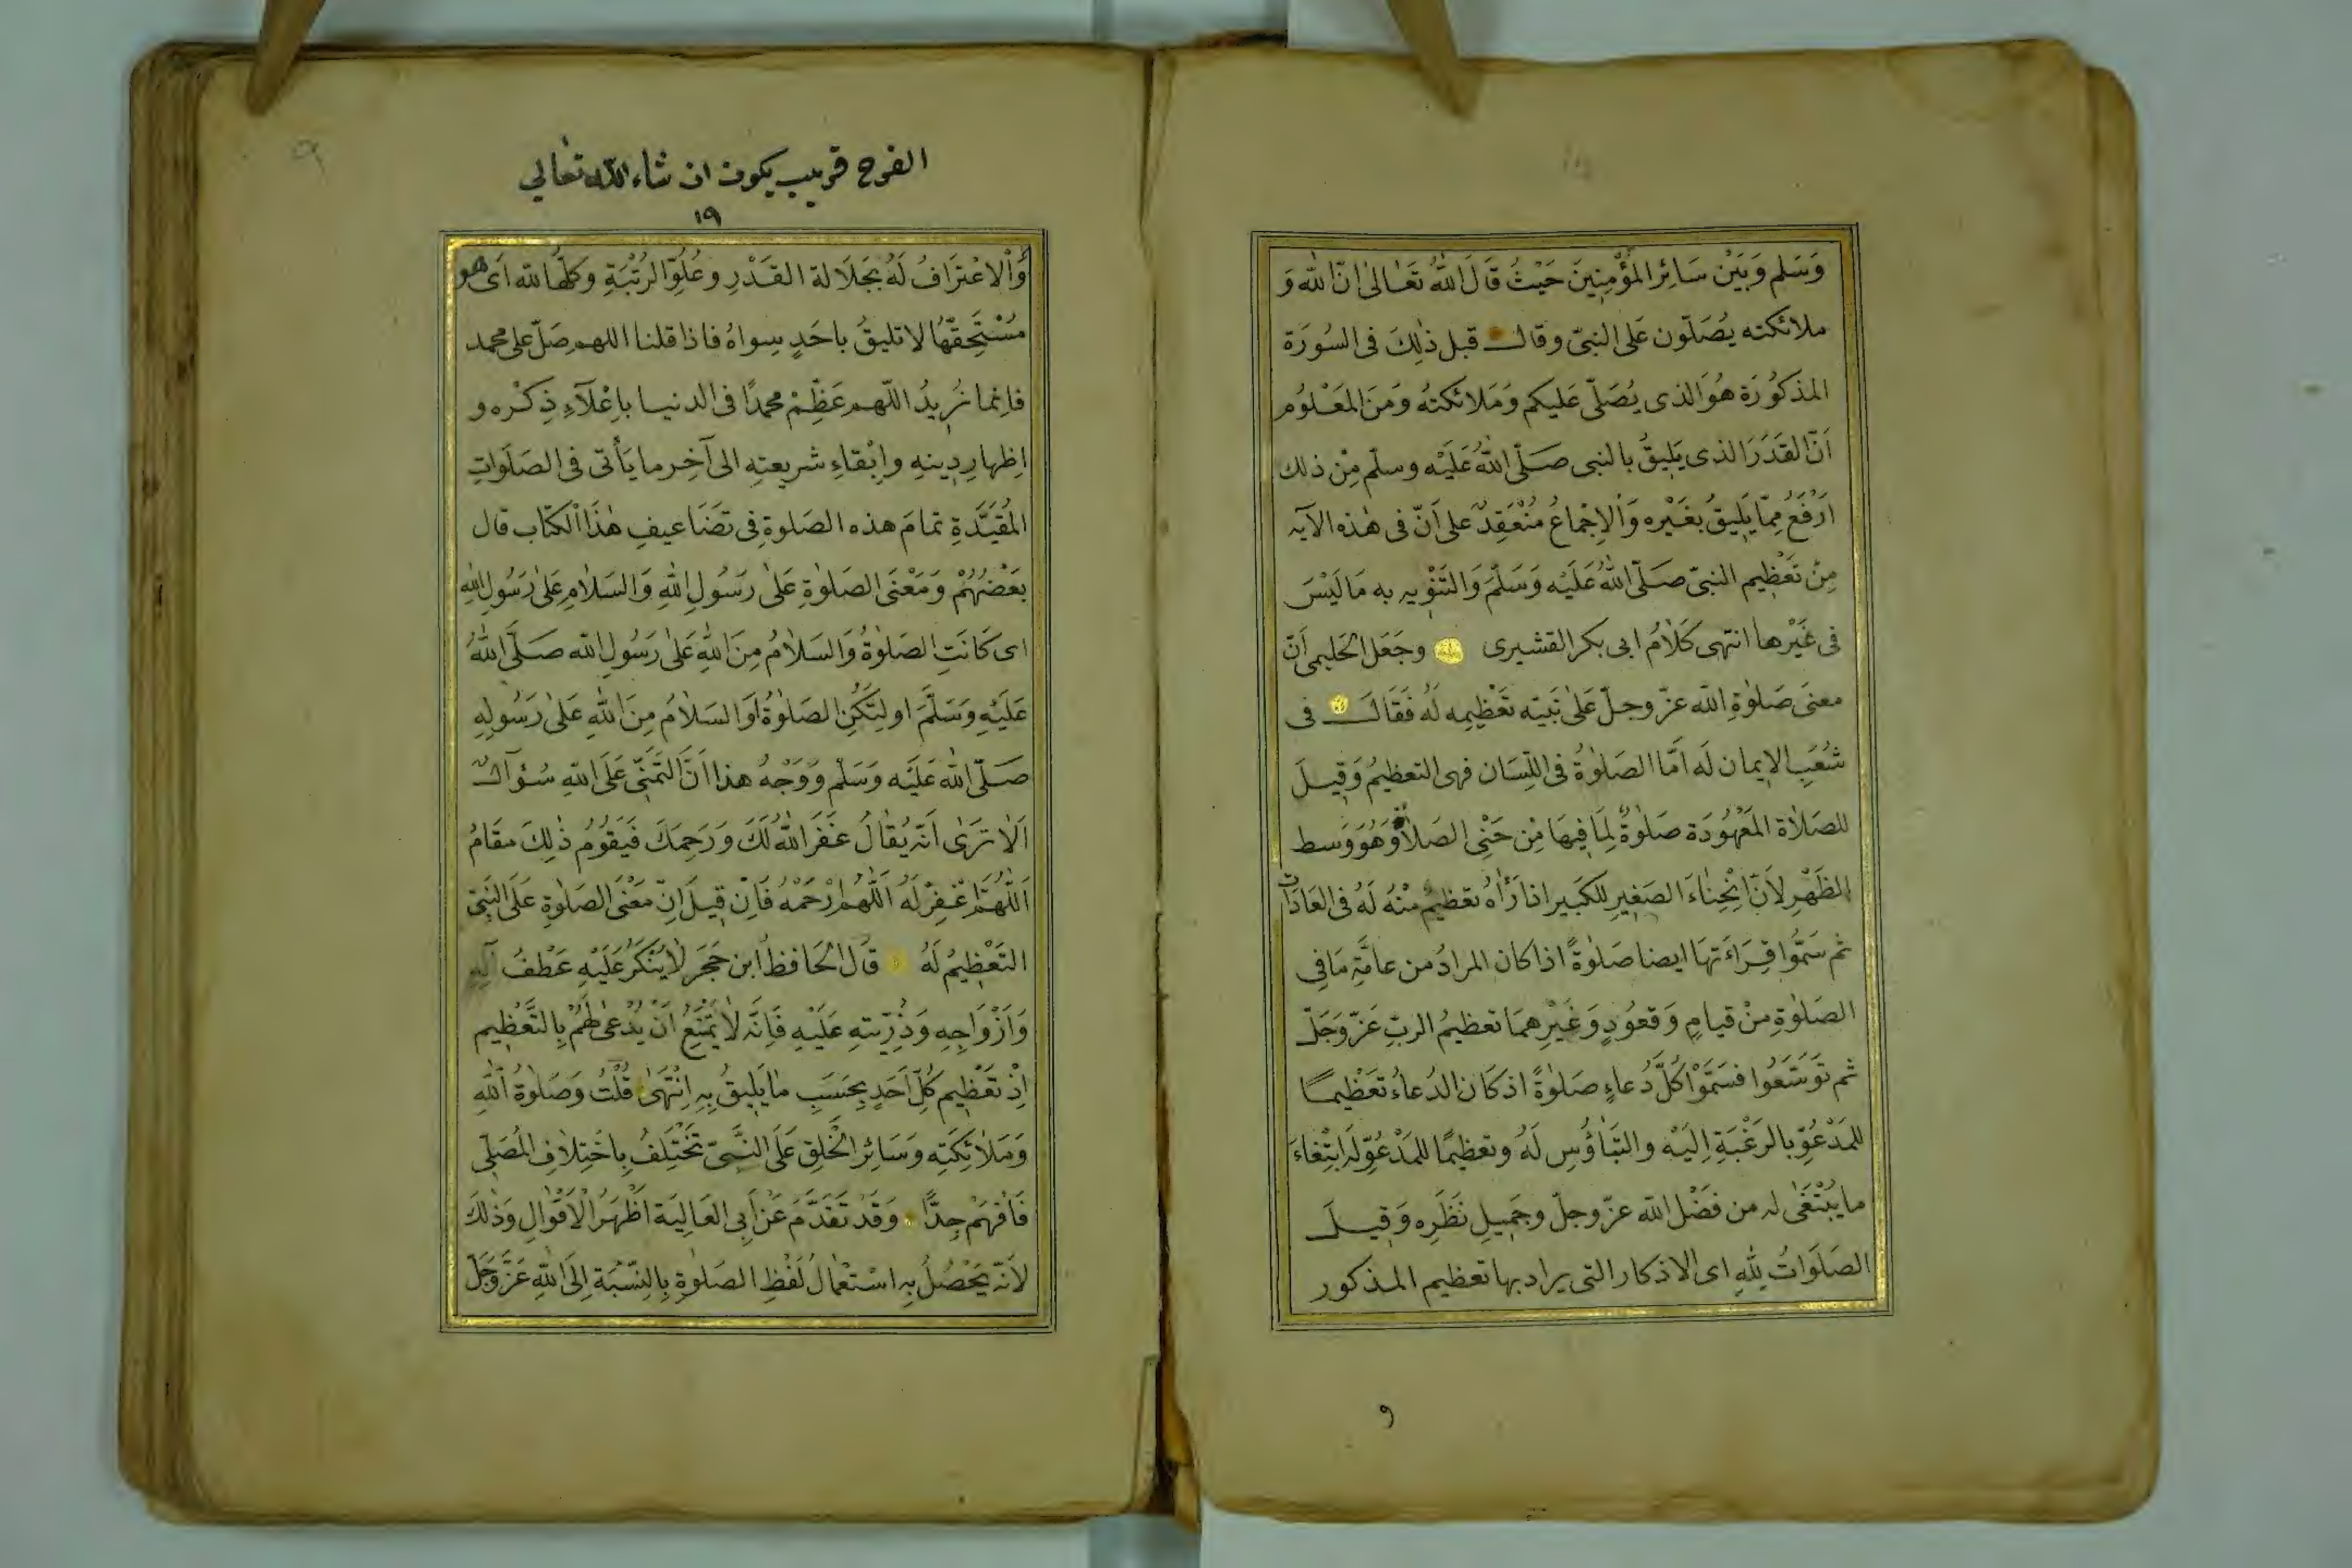 وَسَلم وَبَيْنَ سَائِرِ المؤْمِنِينَ حَيْثُ قَالَ اللهُ تَعَالىٰ اِنّ الله وَ
ملائكته يُصَلّون عَلى النبىّ وقال قبل ذٰلِكَ فى السُورَة
المذكوُرَة هُوَ الذى يُصَلّى عَليكم وَمَلائكتهُ وَمَن المَعْلوُم
اَنّ القَدَرَ الذى يَليقُ بالنبى صَلّى اللهُ عَلَيْه وسلّم مِنْ ذلك
اَرْفَعُ مِمّا يَليقُ بغَيْرِه وَالاِجْماعُ مُنْعَقِدٌ على اَنّ فى هٰذه الآيه
مِنْ تَعْظيمِ النبىّ صَلّى اللهُ عَلَيْه وَسَلّمَ وَالتَنْوِيه به مَا لَيْسَ
فى غَيْرها انتهى كَلاٰمُ ابى بكر القشيرى وجَعَل الحَليمى اَنّ
معنَى صَلوٰةِ الله عزّ وجلّ عَلىٰ نَبيّه تَعْظيِمه لَهُ فَقَالَ فى
شُعَبِ الاِيمان لَه اَمّا الصَلوٰةُ فى اللِسَان فهى التعظيمُ وَقِيلَ
للصَلاٰة المَعْهُودَة صَلوٰةٌ لِمَا فِيهَا مِن حَنْىِ الصَلاٰ وَهُوَ وَسط
الظَهْرِ لاَنّ انْحِناٰءَ الصَغيرِ للكَبير اذا رَأٰهُ تعَظيمٌ مِنْهُ لَهُ فى العَادَات
ثم سَمَّوا قِرَاءَتهَا ايضا صَلوٰةً اذا كان المرادُ من عامّةِ مَا فِى
الصَلوٰةِ مِنْ قيامٍ وَقعُودٍ وَغَيْرِهمَا تعَظيمُ الربّ عَزّ وَجَلّ
ثم توَسّعُوا فسَمّوْا كُلَّ دُعاءٍ صَلوٰةً اذ كَان الدُعاءُ تعَظيمًا
للمَدْعُوِّ بالرَغْبَةِ اِلَيْه والتَباٰؤُسِ لَهُ وتعظيمًا للمَدْعُوِّ لَه ابتِغاٰءَ
ما يُبْتَغىٰ له من فَضْل الله عزّ وجلّ وجَميِلِ نَظَرِه وَقِيلَ
الصَلَوَاتُ لِلّٰهِ اى الاذكار التى يراد بها تعظيم المذكور
و
الفرج قريب يكون ان شاء الله تعالي
١٩
٩
وَالْاعْتِرَافُ لَهُ بجَلَالة القَدْرِ وعُلُوِّ الرُتْبَةِ وَكلّهَا لله اَى هو
مُسْتَحِقّهَا لا تليقُ باحَدٍ سِواهُ فاذا قلنا اللهم صَلّ على محمد
فاِنما نُرِيدُ اللّهم عَظِّمْ محمدًا فى الدنيا باِعْلآءِ ذِكْرِه و
اِظهارِ دِينِهِ وابْقاءِ شريعتِهِ الى آخِر ما يَأتى فى الصَلَواتِ
المُقَيَّدَةِ تمامَ هذه الصَلوةِ فى تضَاعيفِ هٰذَا الْكتَابِ قال
بعَضُهُمْ وَمَعْنَى الصَلوٰةِ عَلىٰ رَسُولِ اللهِ وَالسَلاٰمِ عَلىٰ رَسُولِ اللهِ
اى كَانَتِ الصَلوٰةُ وَالسَلاٰمُ مِنَ اللهِ عَلىٰ رَسُولِ الله صَلَّى اللهُ
عَلَيْهِ وَسَلَّمَ او لِتَكُنِ الصَلوٰةُ اَوَالسَلاٰمُ مِنَ اللهِ عَلىٰ رَسُولِهِ
صَلّى الله عَلَيْه وَسَلّم وَوَجْهُ هذا اَنَّ التمَنِّى عَلَى اللهِ سُؤَآلٌ
اَلاٰ تَرٰى اَنّه يُقاٰلُ غَفَرَ اللهُ لَكَ وَرَحِمَكَ فَيَقُومُ ذٰلِكَ مقَامُ
اَللّٰهُمّ اغْفِرْ لَهُ اَللّٰهُمّ ارْحَمْهُ فَاِنْ قيلَ اِنّ مَعْنَى الصَلوٰةِ عَلَى النَبِىّ
التَعْظِيمُ لَهُ قاَل الحَافِظُ ابن حَجَرَ لاٰ يُنْكَرُ عَلَيْهِ عَطْفُ آلِهِ
وَاَزْوَاجِهِ وَذُرِّيّتهِ عَلَيْهِ فَاِنّه لاٰ يَمْتَنِعُ اَنْ يُدْعىٰ لَهُمْ بِالتَّعْظِيمِ
اِذْ تَعْظِيم كُلِّ اَحَدٍ بِحَسَبِ ماٰ يَليقُ بِهِ اِنْتَهىٰ قُلْتُ وَصَلوٰةُ اللهِ
وَمَلاٰئِكَتِه وَسَائِرِ الْخَلِقِ عَلَى النَّبىّ تَخْتَلِفُ بِاخْتِلاٰفِ المُصَلّى
فَافْهَمْ جِدًّا وَقَدْ تَقَدَّمَ عَنْ اَبِى العَالِيَة اَظْهَرُ الْاَقْوٰالِ وَذٰلِكَ
لاَنّهُ يَحْصُلُ بِهِ اسْتعْماٰلُ لَفْظِ الصَلوٰةِ بِالنِّسْبَةِ اِلَى اللهِ عَزَّوَجَلّ